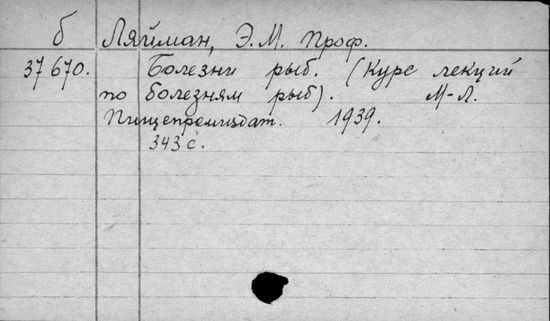 б Ляйман, Э.М. проф.
37670. Болезни рыб. (Курс лекций
по болезням рыб). М-Л.
Пищепромиздат. 1939.
343 с.